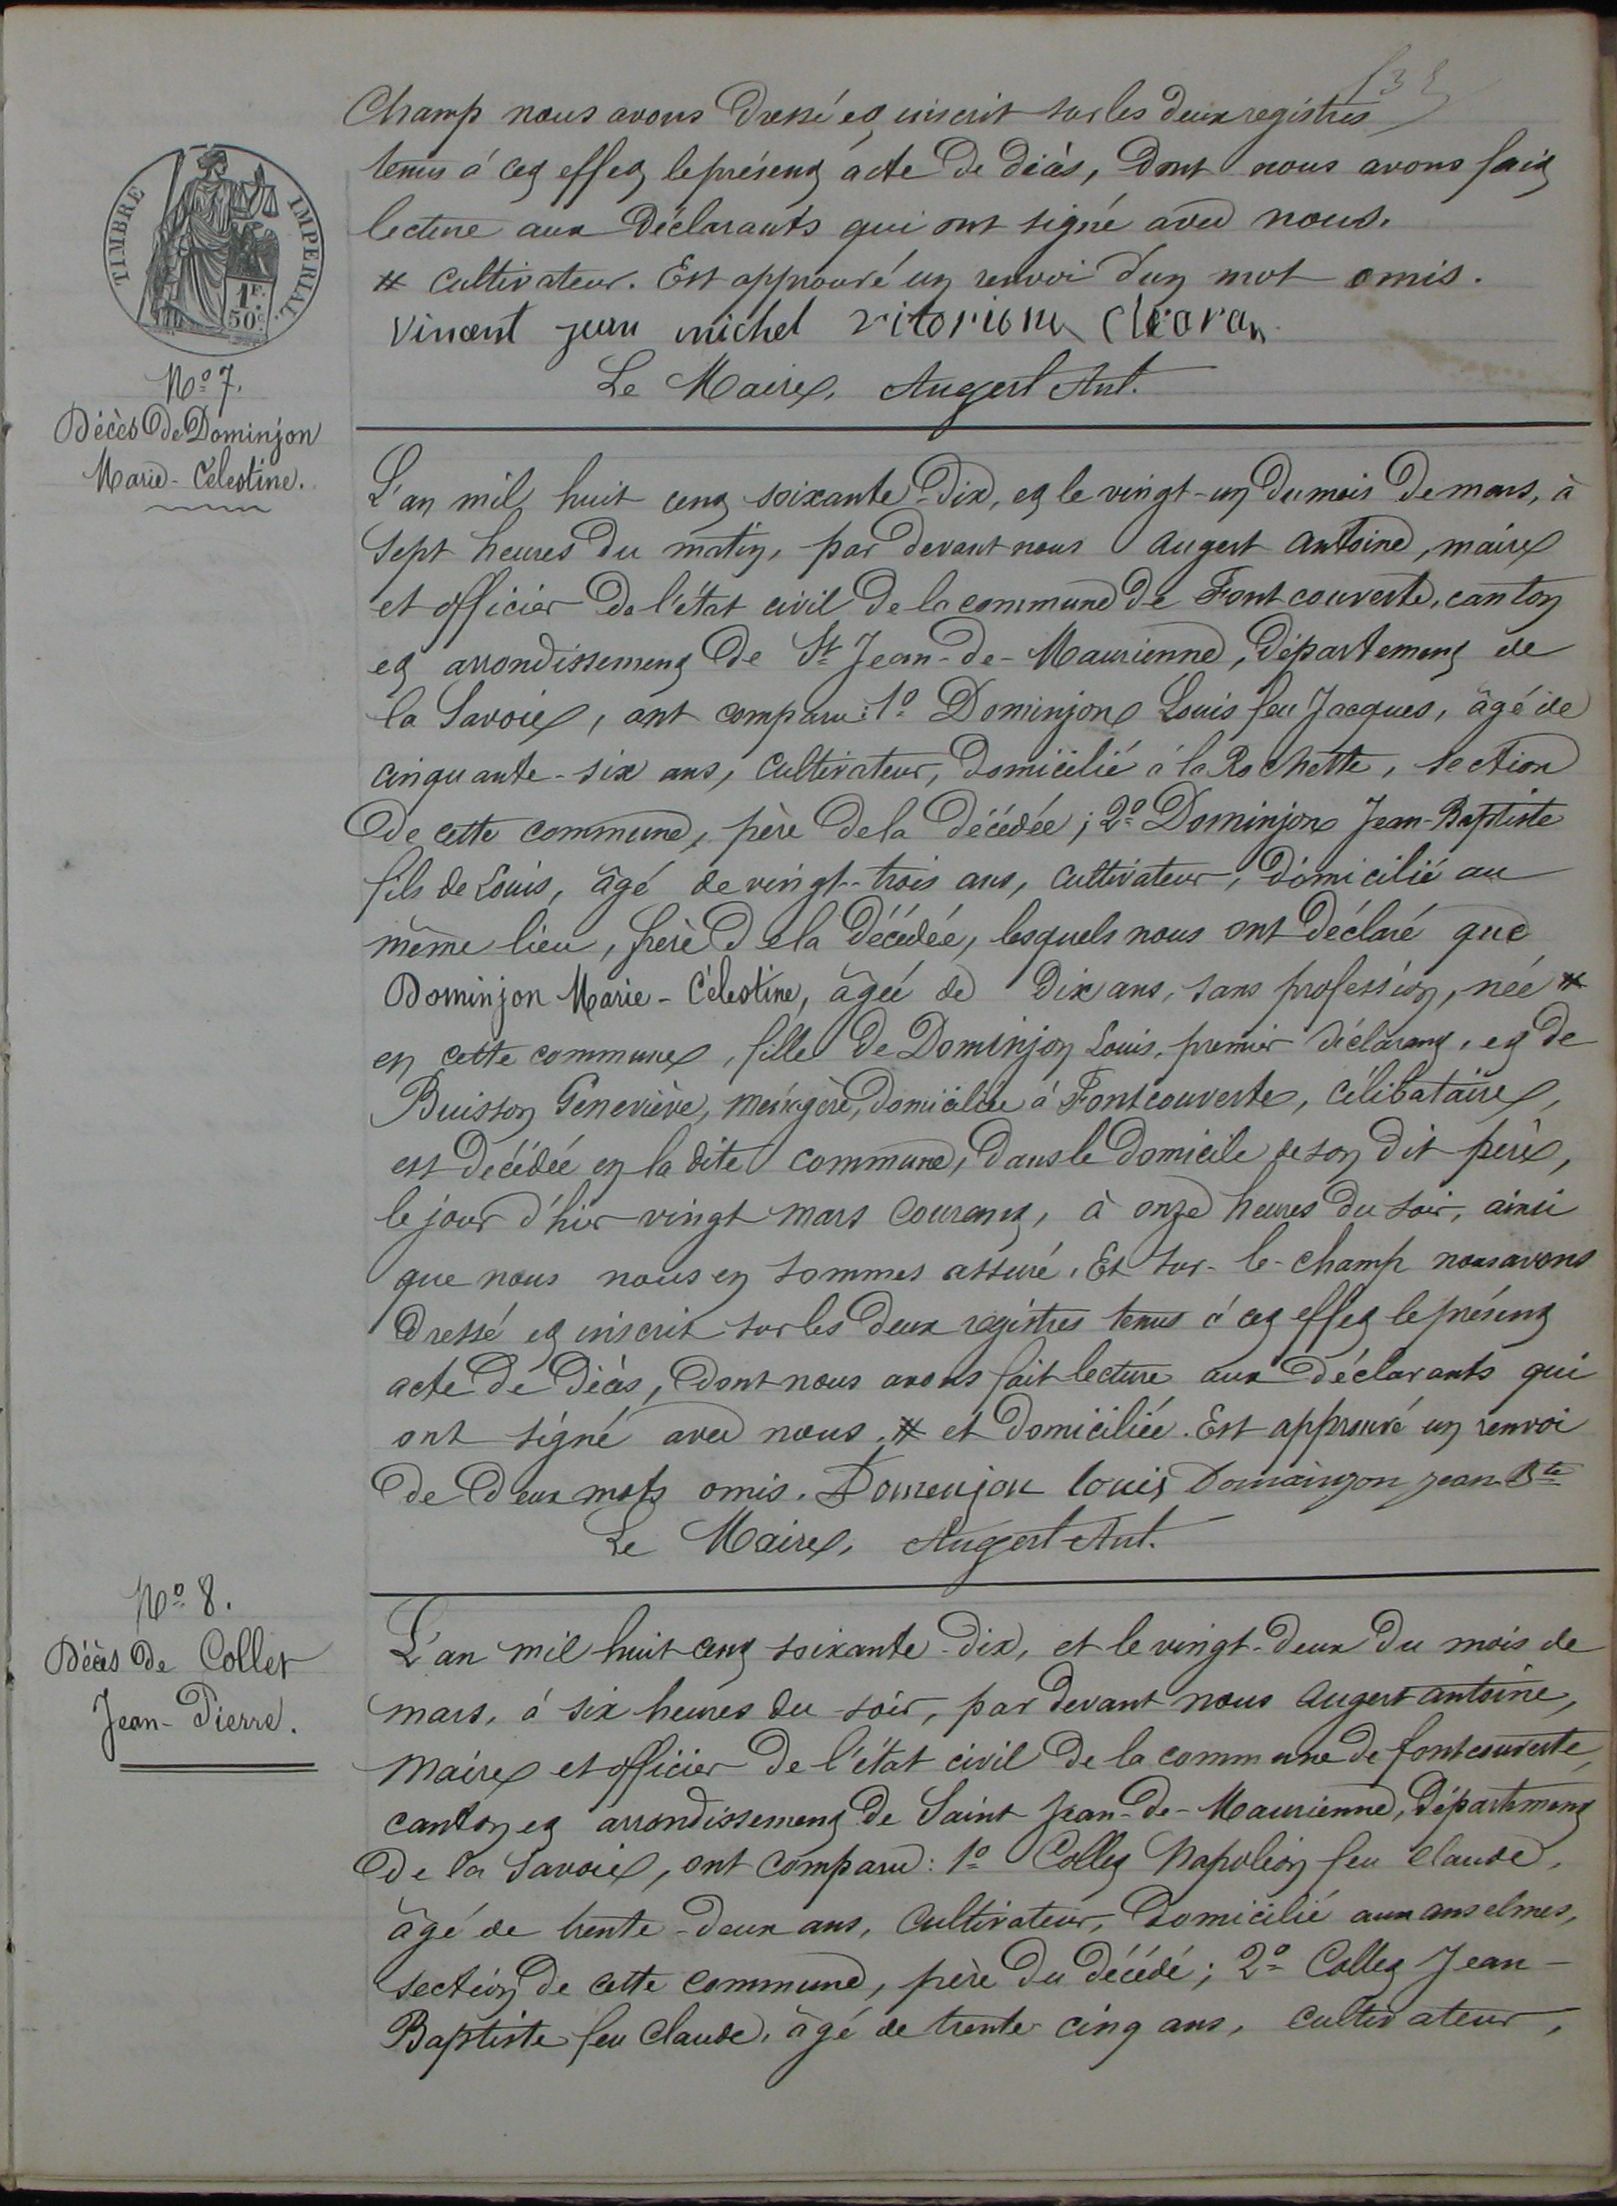 Champ nous avons dressé et inscrit sur les deux registres
tenus à cet effet le présent acte de décès, dont nous avons fait
lecture aux déclarants qui ont signé avec nous.
# cultivateur. Est approuvé un renvoi d'un mot omis.
Vincent jean michel
Le Maire, Augert Ant.
TIMBRE IMPERIAL.
1F.
50c.
No 7.
Décès de Dominjon
Marie-Célestine.
L'an mil huit cent soixante-dix, et le vingt-un du mois de mars, à
sept heures du matin, par devant nous Augert Antoine, maire
et officier de l'état civil de la commune de Fontcouverte, canton
et arrondissement de St Jean-de-Maurienne, département de
la Savoie, ont comparu: 1o Dominjon Louis feu Jacques, âgé de
cinquante-six ans, cultivateur, domicilié à la Rochette, section
de cette commune, père de la décédée; 2o Dominjon Jean-Baptiste
fils de Louis, âgé de vingt-trois ans, cultivateur, domicilié au
même lieu, frère de la décédée, lesquels nous ont déclaré que
Dominjon Marie-Célestine, âgée de dix ans, sans profession, née #
en cette commune, fille de Dominjon Louis, premier déclarant, et de
Buisson Geneviève, ménagère, domiciliée à Fontcouverte, célibataire,
est décédée en la dite commune, dans le domicile de son dit père,
le jour d'hier vingt mars courant, à onze heures du soir, ainsi
que nous nous en sommes assuré. Et sur-le-champ nous avons
dressé et inscrit sur les deux registres tenus à cet effet le présent
acte de décès, dont nous avons fait lecture aux déclarants qui
ont signé avec nous. # et domiciliée. Est approuvé un renvoi
de deux mots omis. Domenjon louis Domainjon jean Bte
Le Maire, Augert Ant.
No 8.
Décès de Collet
Jean-Pierre.
L'an mil huit cent soixante-dix, et le vingt-deux du mois de
mars, à six heures du soir, par devant nous Augert antoine,
Maire et officier de l'état civil de la commune de fontcouverte,
canton et arrondissement de Saint Jean-de-Maurienne, département
de la Savoie, ont comparu: 1o Collet Napoléon feu Claude,
âgé de trente-deux ans, cultivateur, domicilié aux anselmes,
section de cette commune, père du décédé; 2o Collet Jean-
Baptiste feu Claude, âgé de trente cinq ans, cultivateur,